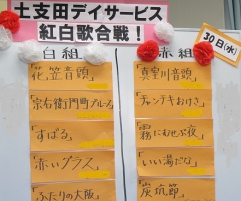 土支田デイサービス
紅白歌合戦!
30日(水)
白組
「花笠音頭」
「宗右衛門町ブルース」
「すばる」
「赤いグラス」
「ふたりの大阪」
紅組
「真室川音頭」
「チャンチキおけさ」
「霧にむせぶ夜」
「いい湯だな」
「炭坑節」